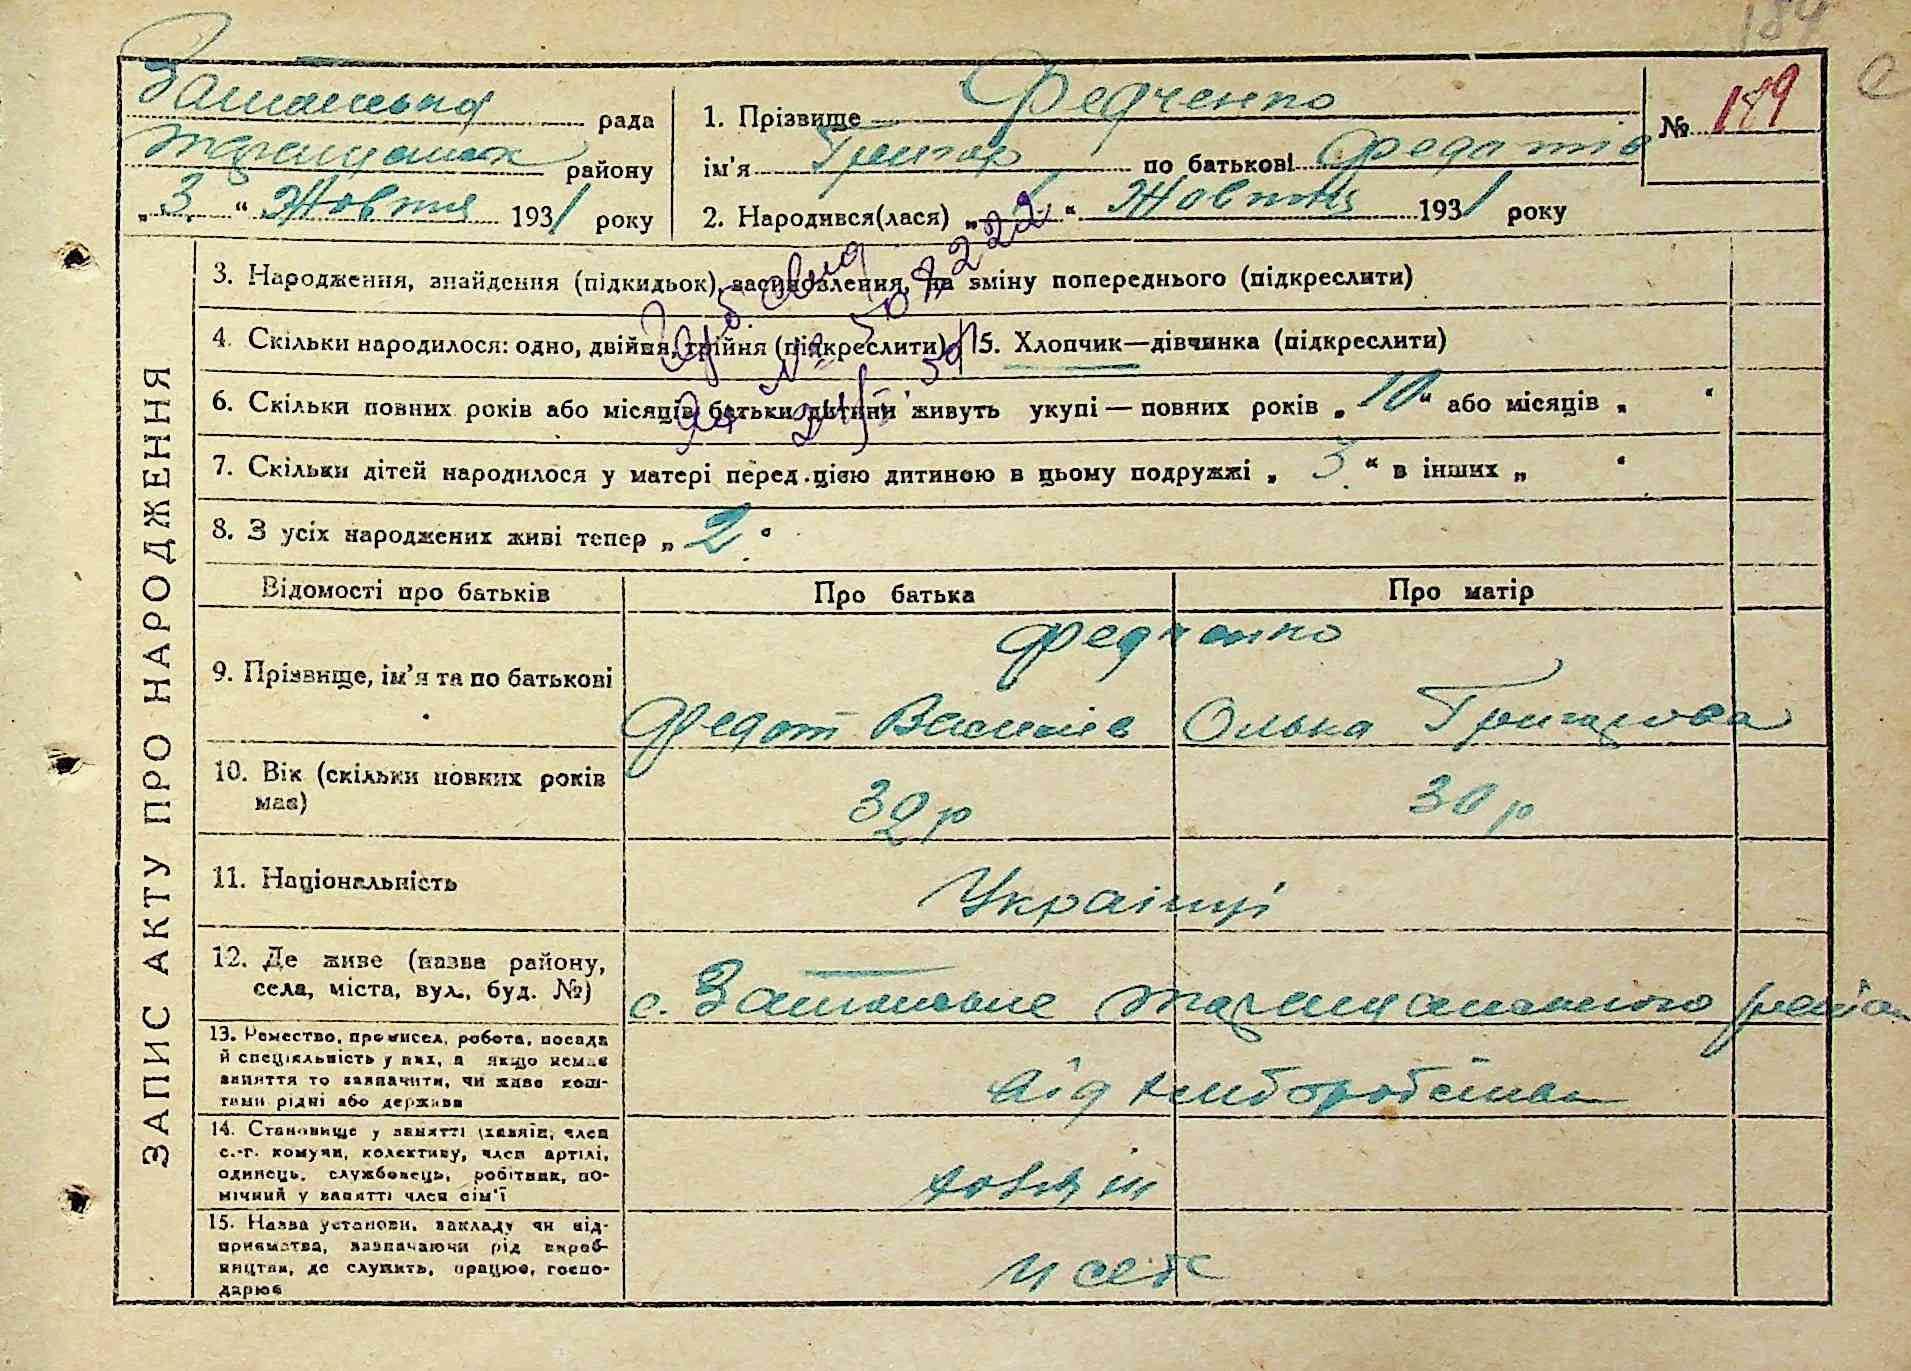 184
Затонська рада
району
„3“ Жовтня 1931 року
1. Прізвище Федченко
ім'я Григор по батькові Федотів
2. Народився(лася) „1“ Жовтня 1931 року
№ 189
ЗАПИС АКТУ ПРО НАРОДЖЕННЯ
3. Народження, знайдення (підкидьок), засиновлення, на зміну попереднього (підкреслити)
4. Скільки народилося: одно, двійня, трійня (підкреслити)
5. Хлопчик—дівчинка (підкреслити)
6. Скільки повних років або місяців батьки дитини живуть укупі — повних років „10“ або місяців „ “
7. Скільки дітей народилося у матері перед цією дитиною в цьому подружжі „3“ в інших „ “
8. З усіх народжених живі тепер „2“
Відомості про батьків
Про батька
Про матір
9. Прізвище, ім'я та по батькові
Федченко
Федот Василів
Олька Григорова
10. Вік (скільки повних років має)
32 р
30 р
11. Національність
Українці
12. Де живе (назва району, села, міста, вул., буд. №)
с.
13. Ремество, промисел, робота, посада
й спеціяльність у них, а якщо немає
заняття то зазначити, чи живе кош-
тами рідні або держави
від хліборобства
14. Становище у занятті (хазяїн, член
с.-г. комуни, колективу, член артілі,
одинець, службовець, робітник, по-
мічний у занятті член сім'ї
хазяїн
15. Назва установи, закладу чи під-
приємства, зазначаючи рід вироб-
ництва, де служить, працює, госпо-
дарює
у себе